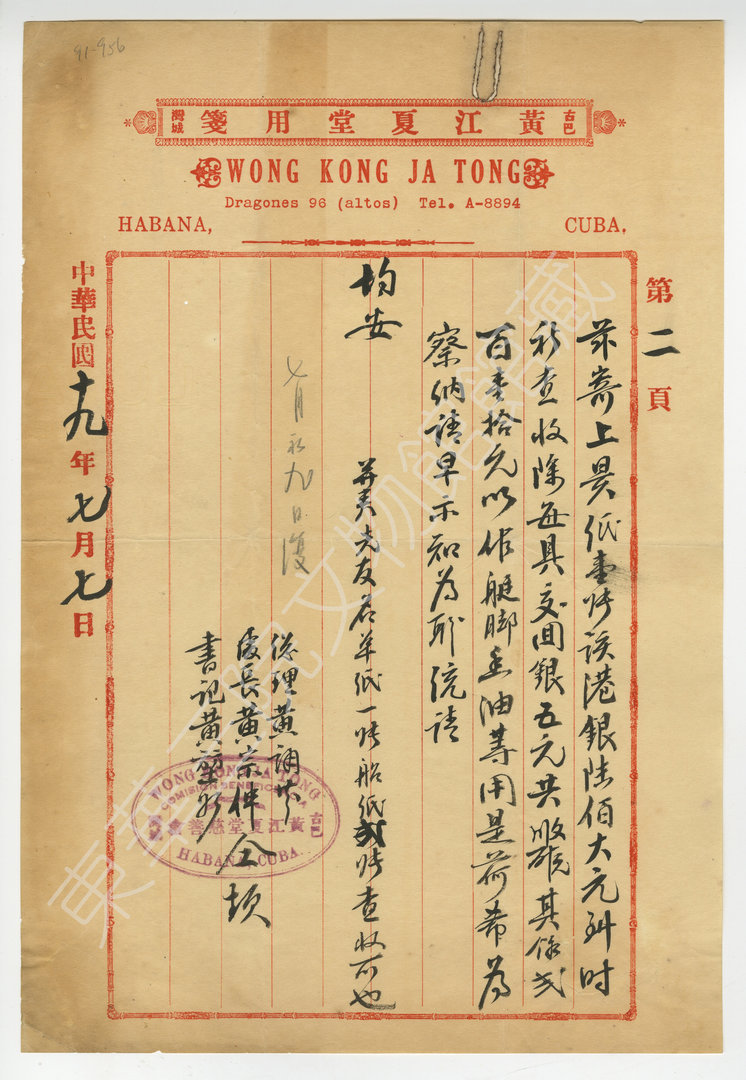 91-956
古巴 黃江夏堂用箋 灣城
WONG KONG JA TONG
Dragones 96 (altos) Tel. A-8894
HABANA, CUBA,
第二頁
茲寄上昃低壹张該港銀陸佰大元到时
祈查收除每具交回銀五元共 其餘弍
百壹拾元以作艇脚 油等用是荷希為
察納請早示知為 統請
均安
并夾先友名单紙一张船紙弍张查收可也
七月 九日復
總理黃
長黃宗
書記黃
仝頓
WONG KONG JA TONG
COMISION BENEFICENCIA
古巴 黃江夏堂慈善會 灣城
HABANA, CUBA.
中華民國十九年七月七日
東華三院文物館館藏